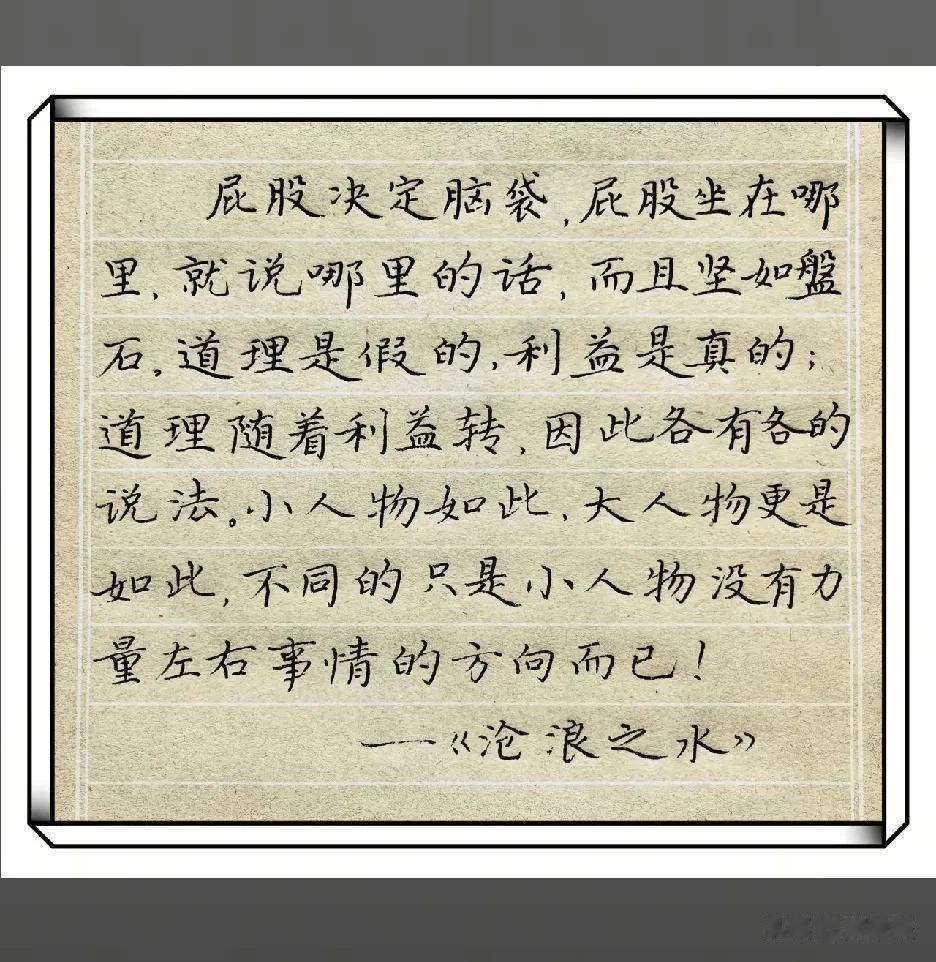 屁股决定脑袋,屁股坐在哪
里,就说哪里的话,而且坚如盤
石。道理是假的,利益是真的;
道理随着利益转,因此各有各的
说法。小人物如此,大人物更是
如此,不同的只是小人物没有力
量左右事情的方向而已!
——《沧浪之水》